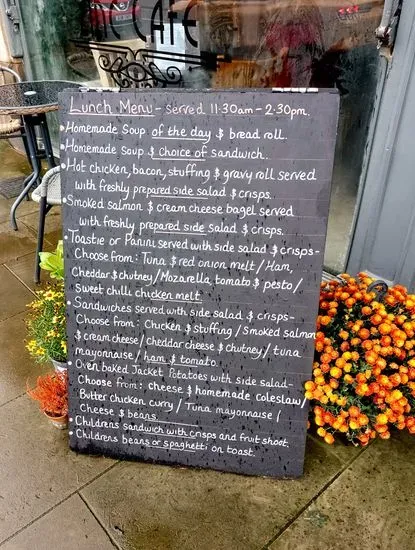 CAFE
Lunch Menu - served 11:30am - 2·30pm.
• Homemade Soup of the day & bread roll.
• Homemade Soup & choice of sandwich.
• Hot chicken, bacon, stuffing & gravy roll served
with freshly prepared side salad & crisps.
• Smoked salmon & cream cheese bagel served
with freshly prepared side salad & crisps.
• Toastie or Panini served with side salad & crisps-
Choose from: Tuna & red onion melt / Ham,
Cheddar & chutney / Mozarella, tomato & pesto /
sweet chilli chicken melt
• Sandwiches served with side salad & crisps-
Choose from: Chicken & stuffing / Smoked salmon
& cream cheese / cheddar cheese & chutney / tuna
mayonnaise / ham & tomato.
• Oven baked Jacket Potatoes with side salad-
Choose from: cheese & homemade coleslaw /
Butter chicken curry / Tuna mayonnaise /
Cheese & beans
• Childrens sandwich with crisps and fruit shoot.
• Childrens beans or spaghetti on toast.